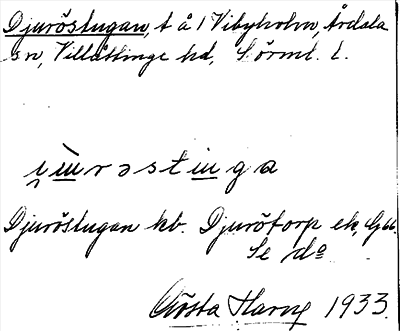 Djuröstugan, t å 1 Vibyholm, Årdala
sn, Villåttinge hd, Sörml. l.
Djuröstugan kb. Djurötorp ek,
Se dº
Gösta Harry 1933.